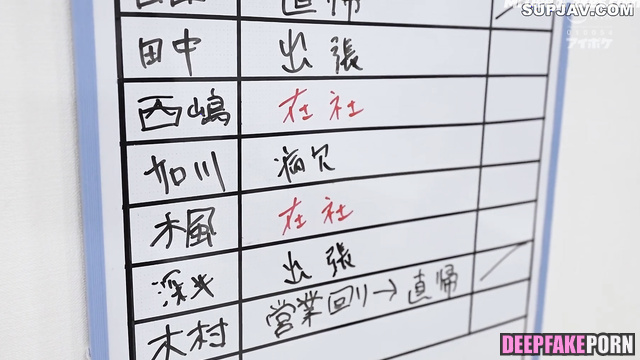 SUPJAV.COM
直帰
アイポケ
田中 出張
西嶋 在社
加川 病欠
木楓 在社
深井 出張
木村 営業回り→直帰
DEEPFAKEPORN